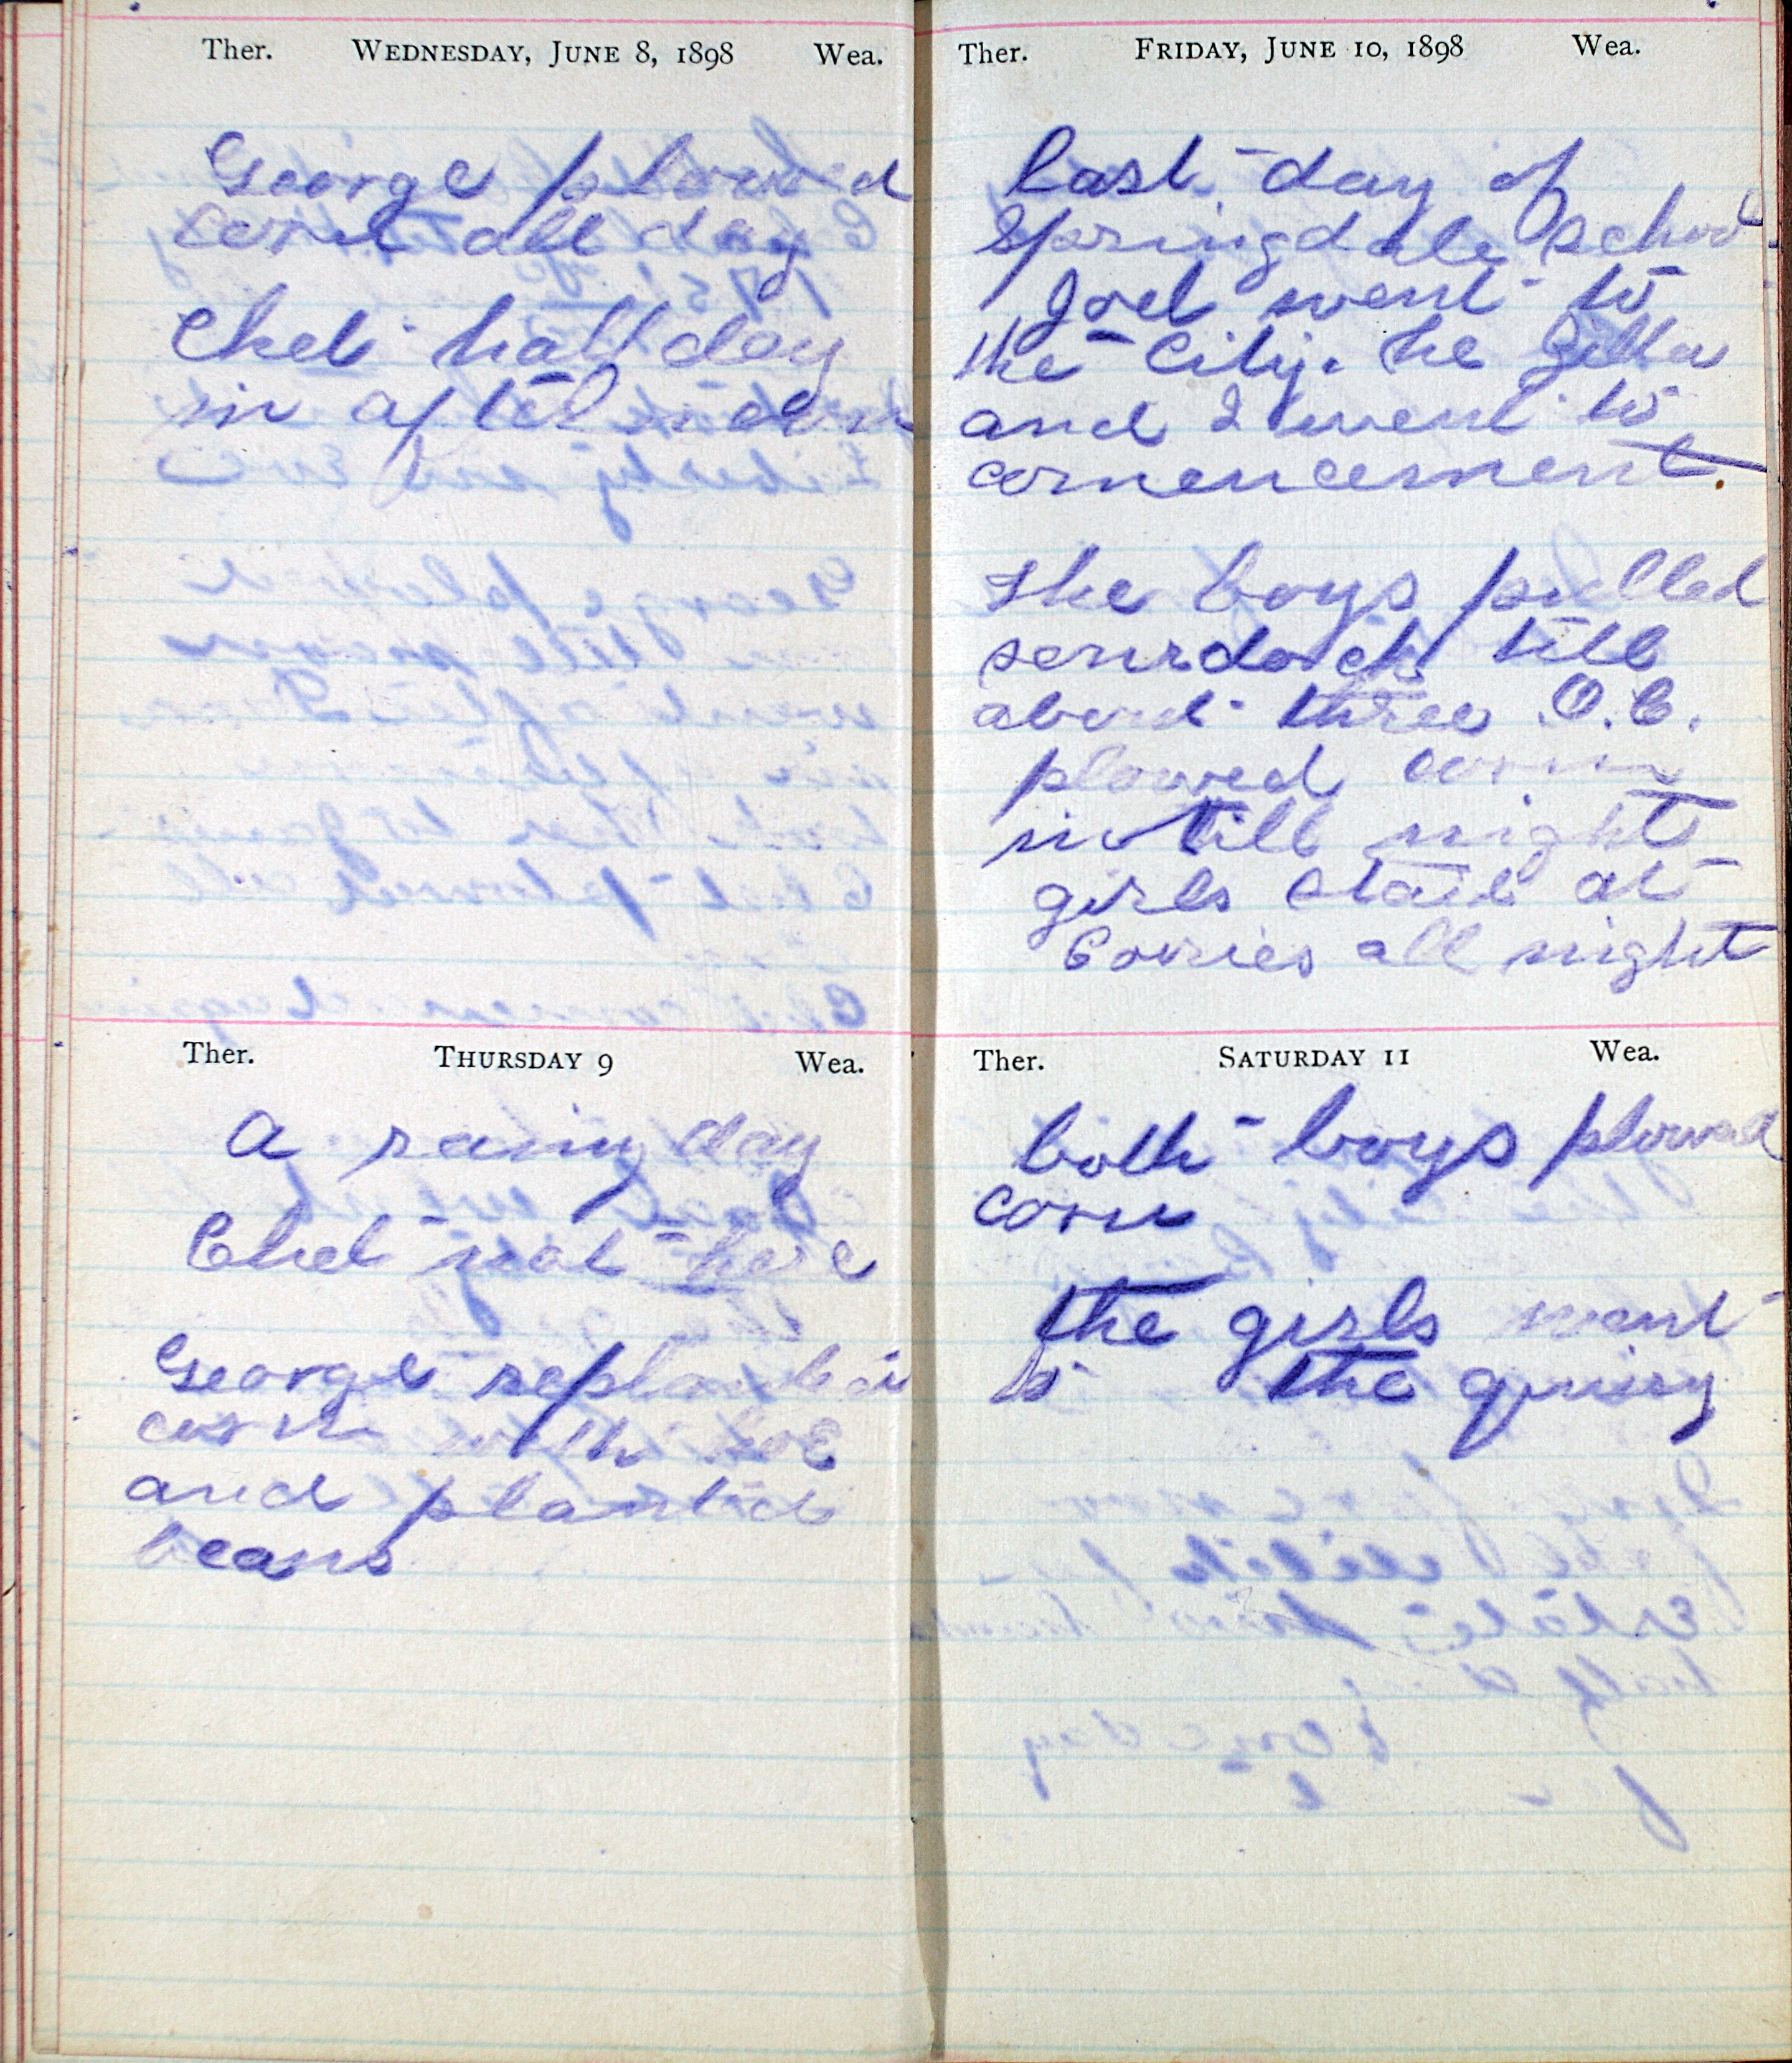 Ther. WEDNESDAY, JUNE 8, 1898 Wea.
George plowed
corn all day
Chet half day
in afternoon
Ther. THURSDAY 9 Wea.
A rainy day
Chet not here
George replanted
corn with hoe
and planted
beans
Ther. FRIDAY, JUNE 10, 1898 Wea.
last day of
Springdale school
Joel went to
the City. he Zella
and I went to
comencement.
The boys pulled
sourdock till
about three O.C.
plowed corn
till night
girls staid at
Corries all night
Ther. SATURDAY 11 Wea.
both boys plowed
corn
the girls went
to the quiry